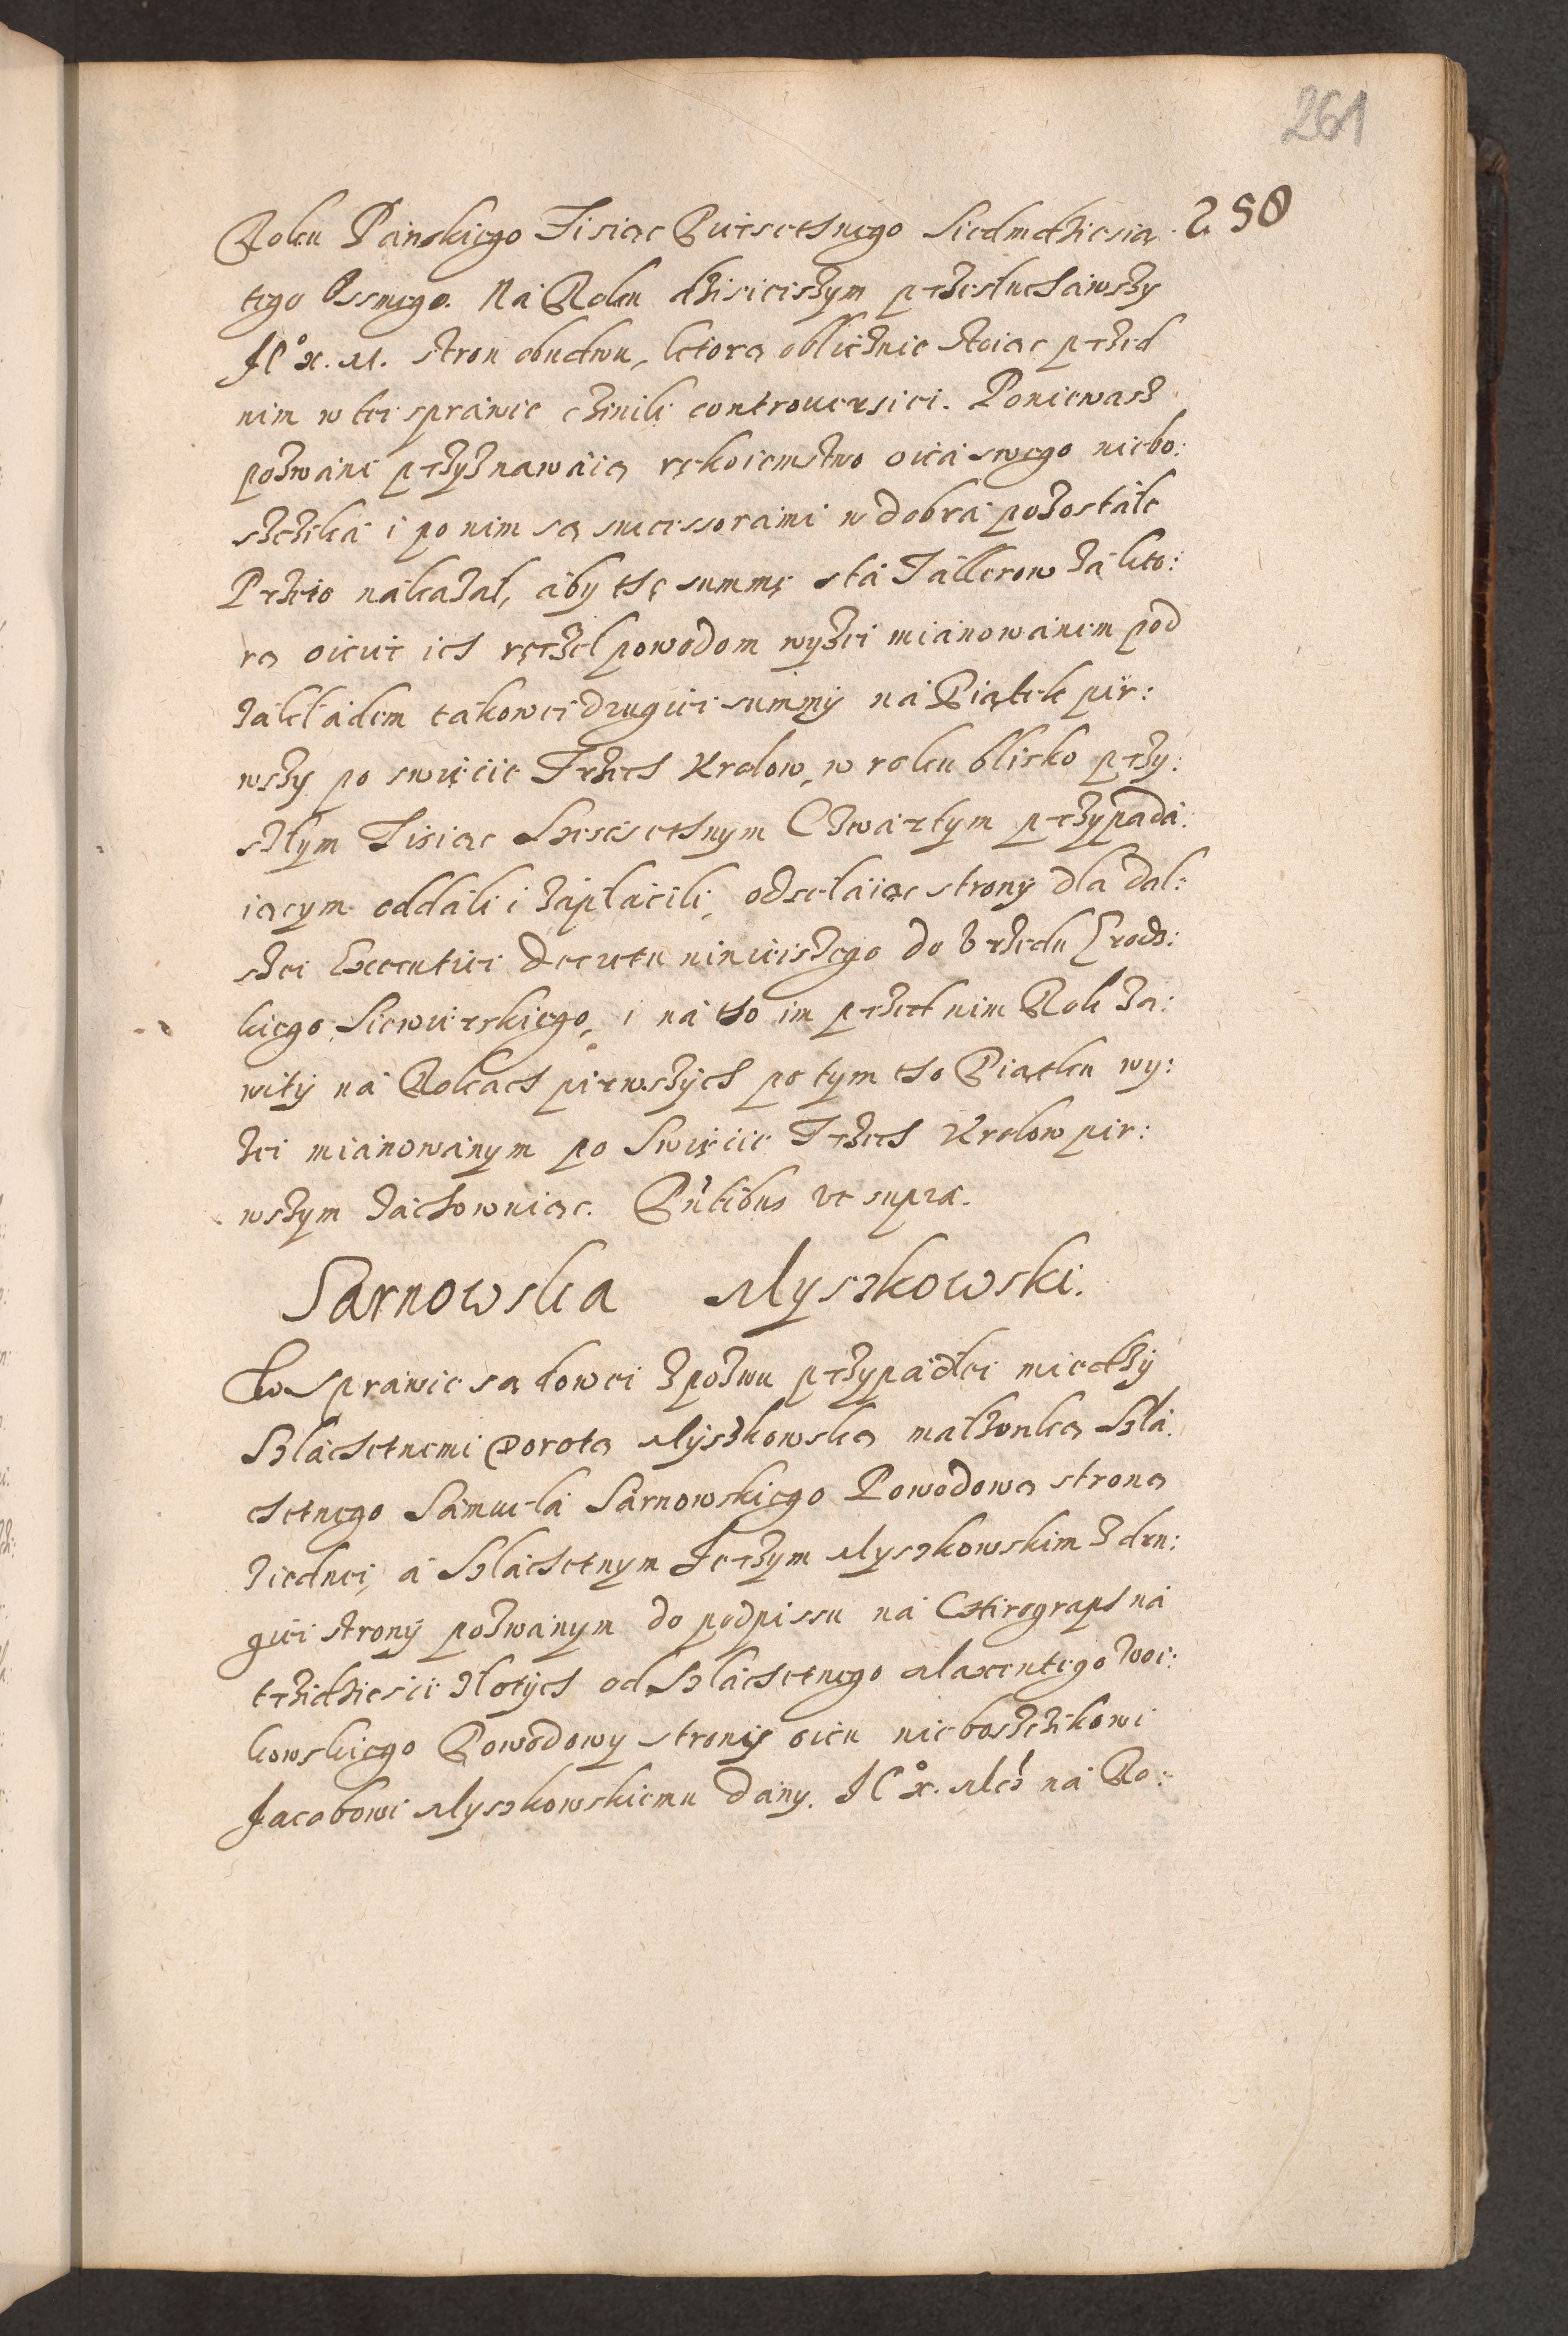 261
258
Roku Pańskiego Tisiąc Piersethnego Siedmdziesią
tego Ossmego. Na Roku dzisieiszym przesłuchawszy
JC° x. M. stron obudwu, ktorą oblicznie stoiąc przed
nim w tei sprawie czinili controuersiei. Poniewasz
pozwani przyznawaią rękoiemstwo oica swego niebo:
szczika i po nim są successorami w dobra pozostałe
Przeto nakazał, aby thę summę sta Tallerow za kto:
rą oiciec ich ręczel powodom wyżei mianowanem pod
zakładem takowei drugiei summy na Piątek pir:
wszy po swięcie Trzech Krolow, w roku blisko przy:
szłym Tisiąc Szescsethnym Czwartym przypada:
iącym oddali i zapłacili, odsełaiąc strony dla dal:
szei Executiei decretu ninieiszego do Vrzedu Grodz:
kiego Siewierskiego, i na tho im przed nim Rok za:
wity na Rokach pierwszych po tym tho Piątku wy:
żei mianowanym po Swięcie Trzech Krolow pir:
wszym zachowuiąc. Pñtibus vt supra.
Sarnowska Myszkowski.
W Sprawie sądowei z pozwu przypadłei miedzy
Szlachetnemi Dorotą Myszkowską małżonką Szla:
chetnego Samuela Sarnowskiego Powodową stroną
z iednei, a Szlachetnym Jerzym Myszkowskim z dru:
giei strony pozwanym do podpissu na Chirograph na
trzidziesci złotych od Szlachetnego Maxentego Woi:
kowskiego Powodowy strony oicu nieboszczikowi
Jacobowi Myszkowskiemu dany. JC° x. Mcż na Ro: